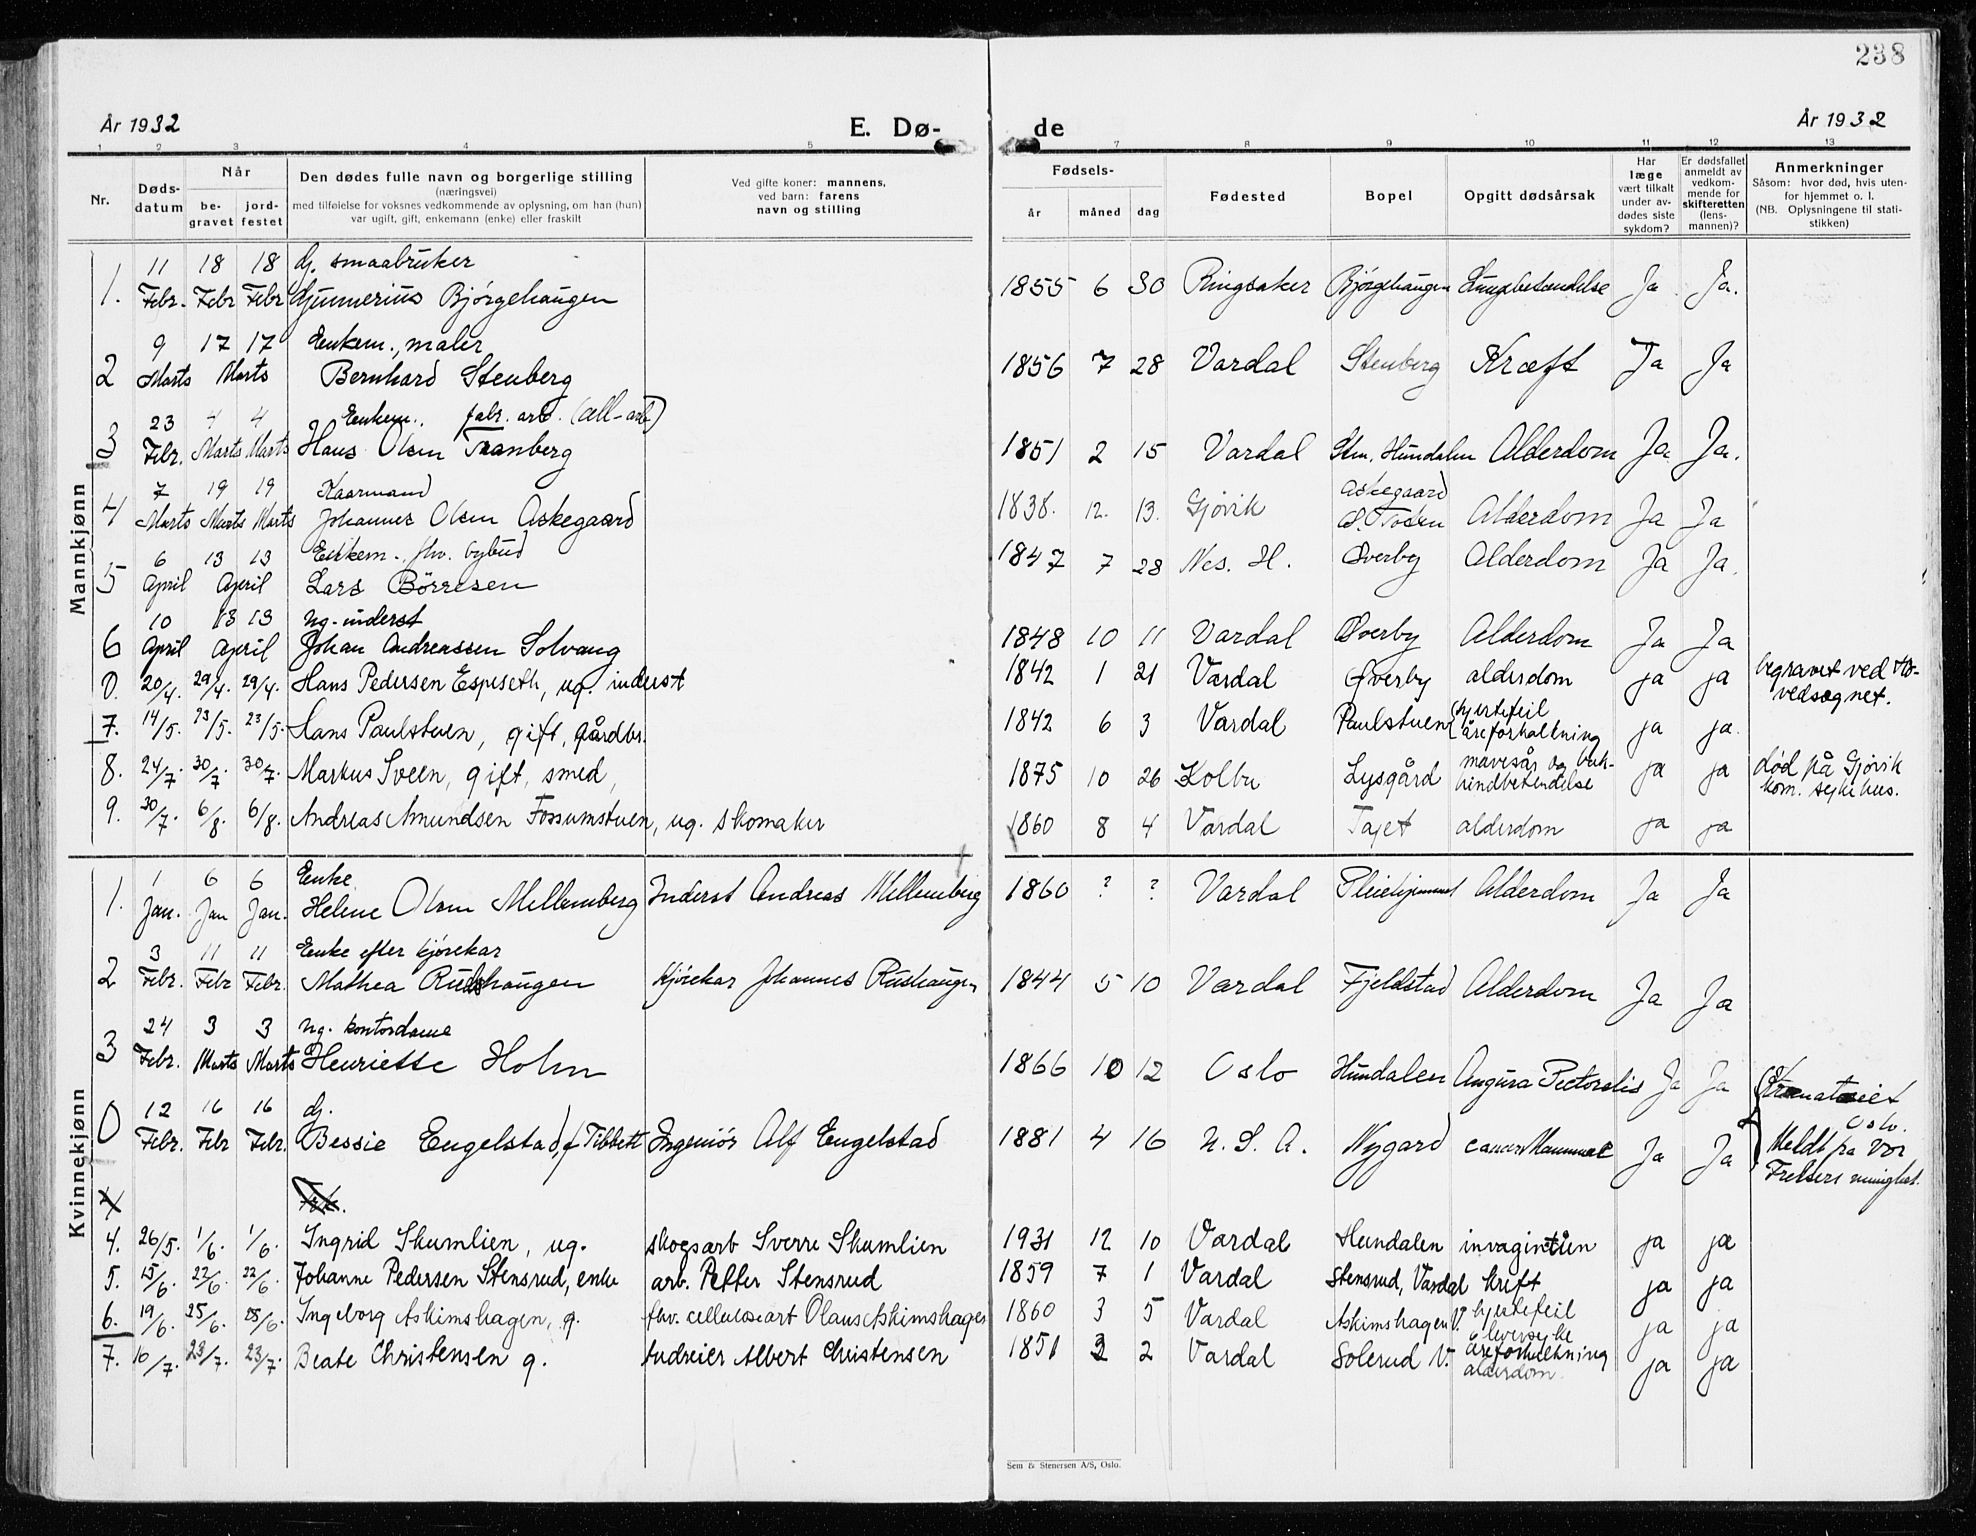 238
År 1932 E. Dø- de År 1932
1 2 3 4 5 7 8 9 10 11 12 13
Nr. Døds-datum Når be-gravet jord-festet Den dødes fulle navn og borgerlige stilling (næringsvei) med tilføielse for voksnes vedkommende av oplysning, om han (hun) var ugift, gift, enkemann (enke) eller fraskilt Ved gifte koner: mannens, ved barn: farens navn og stilling Fødsels- år måned dag Fødested Bopel Opgitt dødsårsak Har læge vært tilkalt under av-dødes siste sykdom? Er dødsfallet anmeldt av vedkom-mende for skifteretten (lens-mannen)? Anmerkninger Såsom: hvor død, hvis uten-for hjemmet o. l. (NB. Oplysningene til stati-stikken)
Mannkjønn
11 18 18 dj. smaabruker
1. Febr. Febr Febr Gunnerius Bjørgehaugen 1855 6 30 Ringsaker Bjørgehaugen Lungebetændelse Ja Ja.
9 17 17 Enkem., maler
2 Marts Marts Bernhard Stenberg 1856 7 28 Vardal Stenberg Kræft Ja Ja
23 4 4 Enkem. fabr. arb. (cell-arb)
3 Febr. Marts Marts Hans Olsen Tranberg 1851 2 15 Vardal Hundalen Alderdom Ja Ja.
7 19 19 Kaarmand Askegaard
4 Marts Marts Marts Johannes Olsen Askegaard 1838. 12. 13. Gjøvik Alderdom Ja Ja
6 13 13 Enkem. fhv. bybud
5 April April Lars Børresen 1847 7 28 Nes. H. Øverby Alderdom Ja Ja.
10 13 13 ug. inderst
6 April April Johan Andreassen Solvang 1848 10 11 Vardal Øverby Alderdom Ja Ja
0. 20/4. 29/4. 29/4. Hans Pedersen Espeseth, ug. inderst 1842 1 21 Vardal Øverby alderdom ja ja begravet ved Ho-vedsognet.
7. 14/5. 23/5. 23/5. Hans Paulstuen, gift, gårdbr. 1842 6 3 Vardal Paulstuen hjertefeil åreforkalkning ja ja.
8. 24/7. 30/7. 30/7. Markus Sveen, gift, smed, 1875 10 26 Kolbu Lysgård mavesår og buk-hindbetendelse ja ja død på Gjøvik kom. sykehus.
9. 30/7. 6/8. 6/8. Andreas Amundsen Fossumstuen, ug. skomaker 1860 8 4 Vardal Tajet alderdom ja ja
Kvinnekjønn
1 6 6 Enke
1. Jan. Jan Jan. Helene Olsen Mellemberg Inderst Andreas Mellemberg 1860 ? ? Vardal Pleiehjemmet Alderdom Ja Ja
3 11 11 Enke efter kjørekar
2 Febr. Febr Febr. Mathea Rudshaugen Kjørekar Johannes Rushaugen 1844 5 10 Vardal Fjeldstad Alderdom Ja Ja
24 3 3 ug. kontordame
3 Febr. Marts Marts Henriette Holm 1866 10 12 Oslo Hundalen Angina Pectoralis Ja Ja
12 16 16 dj.
0 Febr. Febr Febr. Bessie Engelstad, f Tibbett Ingeniør Alf Engelstad 1881 4 16 U. S. A. Nygard cancer Mammae Ja Ja Krematoriet Oslo. Meldt fra Vor Frelsers menighet.
x Frk.
4. 26/5. 1/6. 1/6. Ingrid Skumlien, ug. skogsarb Sverre Skumlien 1931 12 10 Vardal Hundalen invagination ja ja
5. 15/6. 22/6. 22/6. Johanne Pedersen Stensrud, enke arb. Petter Stensrud 1859 7 1 Vardal Stensrud, Vardal kreft ja ja
6. 19/6. 25/6. 25/6. Ingeborg Askimshagen, g. fhv. cellulosearb Olaus Askimshagen 1860 3 5 Vardal Askimshagen V. hjertefeil leversyke ja ja
7. 16/7. 23/7. 23/7. Beate Christensen g. Andreier Albert Christensen 1851 2 2 Vardal Solerud V. åreforkalkning alderdom ja ja
Sem & Stenersen A/S, Oslo.